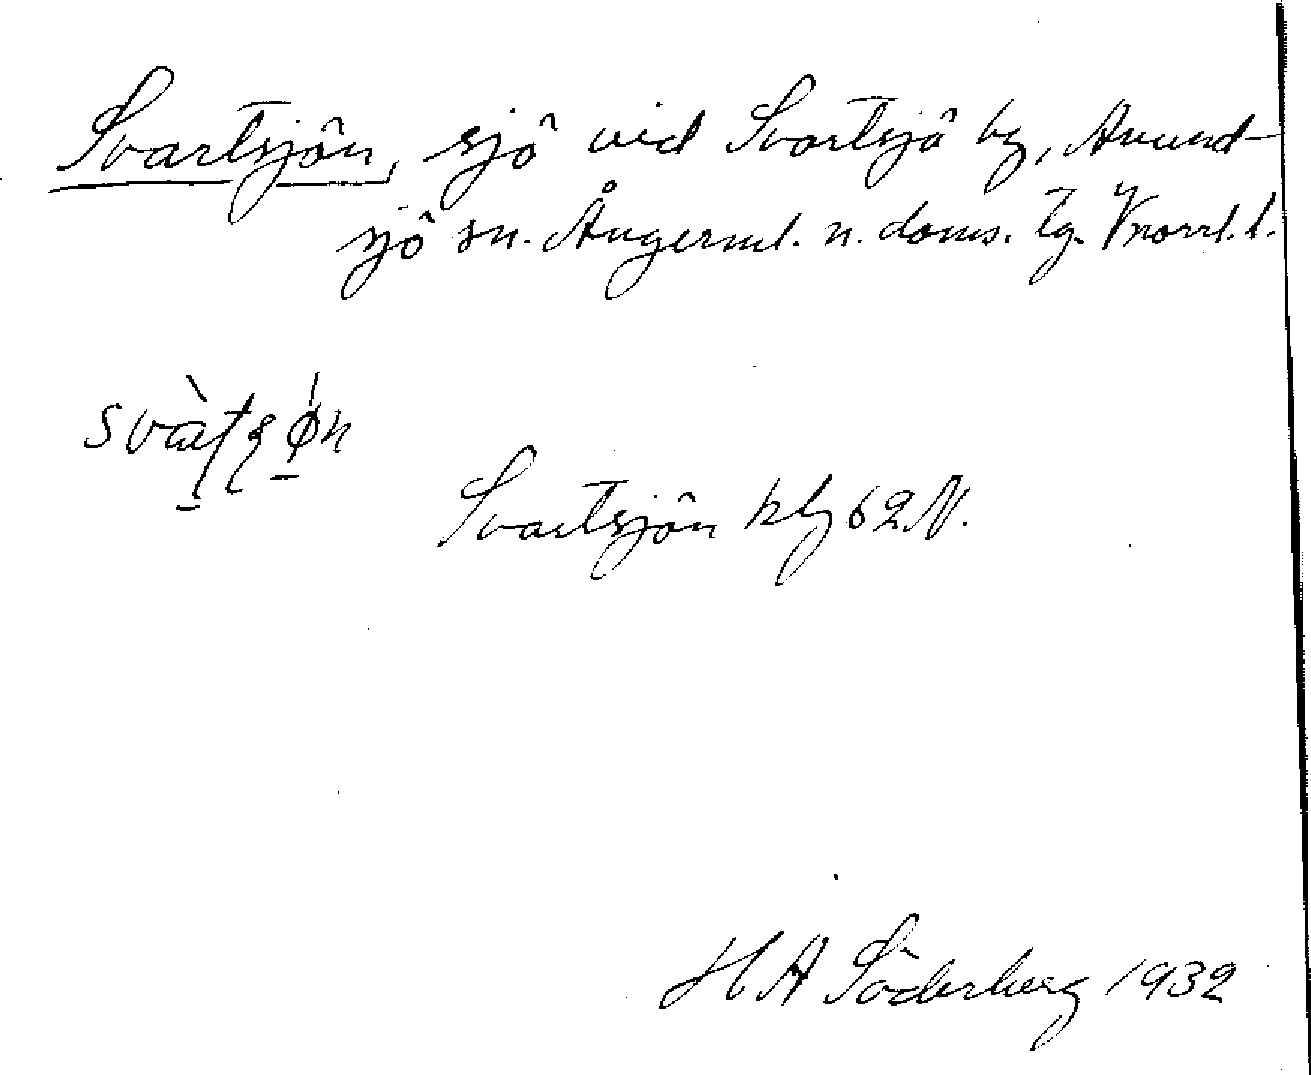 Svartsjön, sjö vid Svartsjö by, Anund-
sjö sn. Ångerml. n. doms. tg. Vnorrl. l.
Svartsjön kbl 62 N.
H A Söderberg 1932